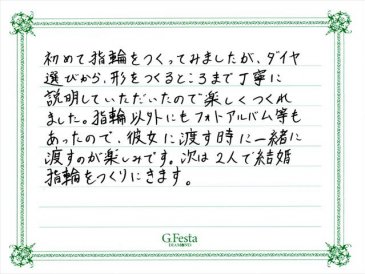 初めて指輪をつくってみましたが、ダイヤ
選びから、形をつくるところまで丁寧に
説明していただいたので楽しくつくれ
ました。指輪以外にもフォトアルバム等も
あったので、彼女に渡す時に一緒に
渡すのが楽しみです。次は2人で結婚
指輪をつくりにきます。
G.Festa
DIAMOND